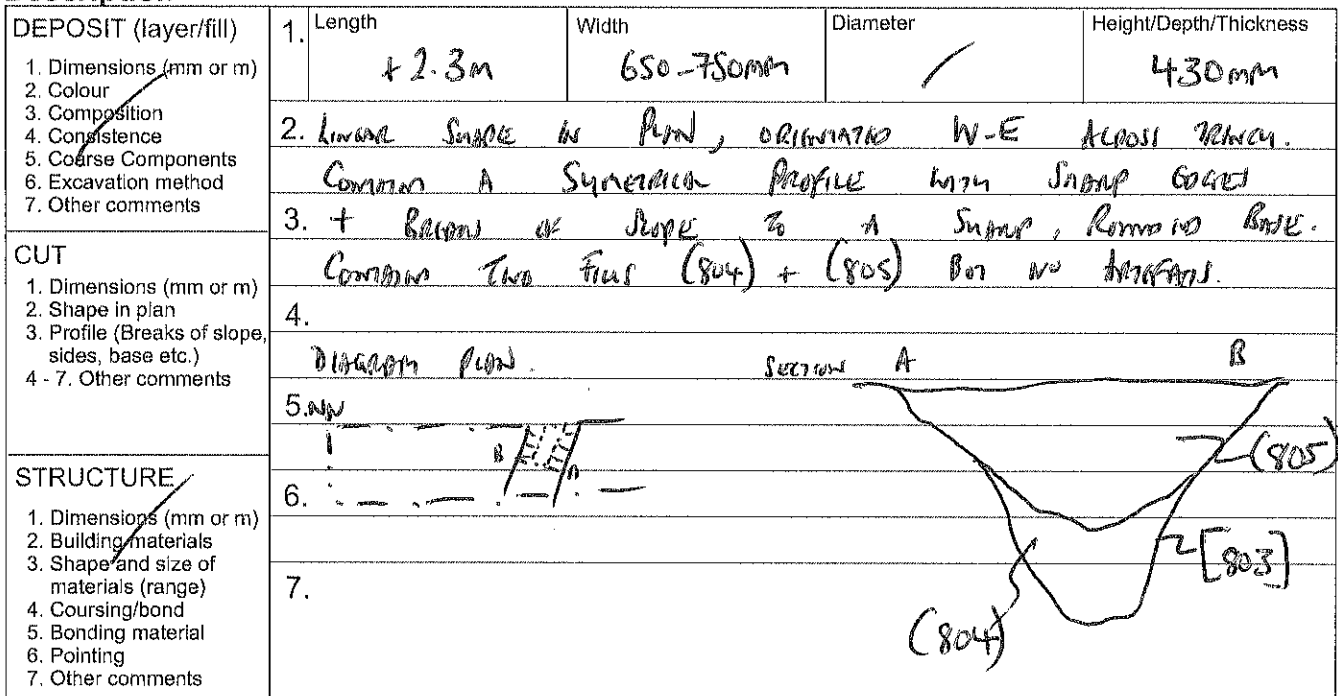 DEPOSIT (layer/fill)
1. Dimensions (mm or m)
2. Colour
3. Composition
4. Consistence
5. Coarse Components
6. Excavation method
7. Other comments
CUT
1. Dimensions (mm or m)
2. Shape in plan
3. Profile (Breaks of slope,
sides, base etc.)
4 - 7. Other comments
STRUCTURE
1. Dimensions (mm or m)
2. Building materials
3. Shape and size of
materials (range)
4. Coursing/bond
5. Bonding material
6. Pointing
7. Other comments
1. Length Width Diameter Height/Depth/Thickness
+2.3m 650-750mm / 430mm
2. LINEAR SHAPE IN PLAN, ORIENTATED W-E ACROSS TRENCH.
A SYMETRICAL PROFILE WITH SHARP EDGES
3. + BREAKS OF SLOPE TO A SHARP, ROUNDED BASE.
TWO FILLS (804) + (805) BUT NO ARTEFACTS.
4.
DIAGRAM PLAN. SECTION A B
5.
B
(805)
6.
[803]
7.
(804)